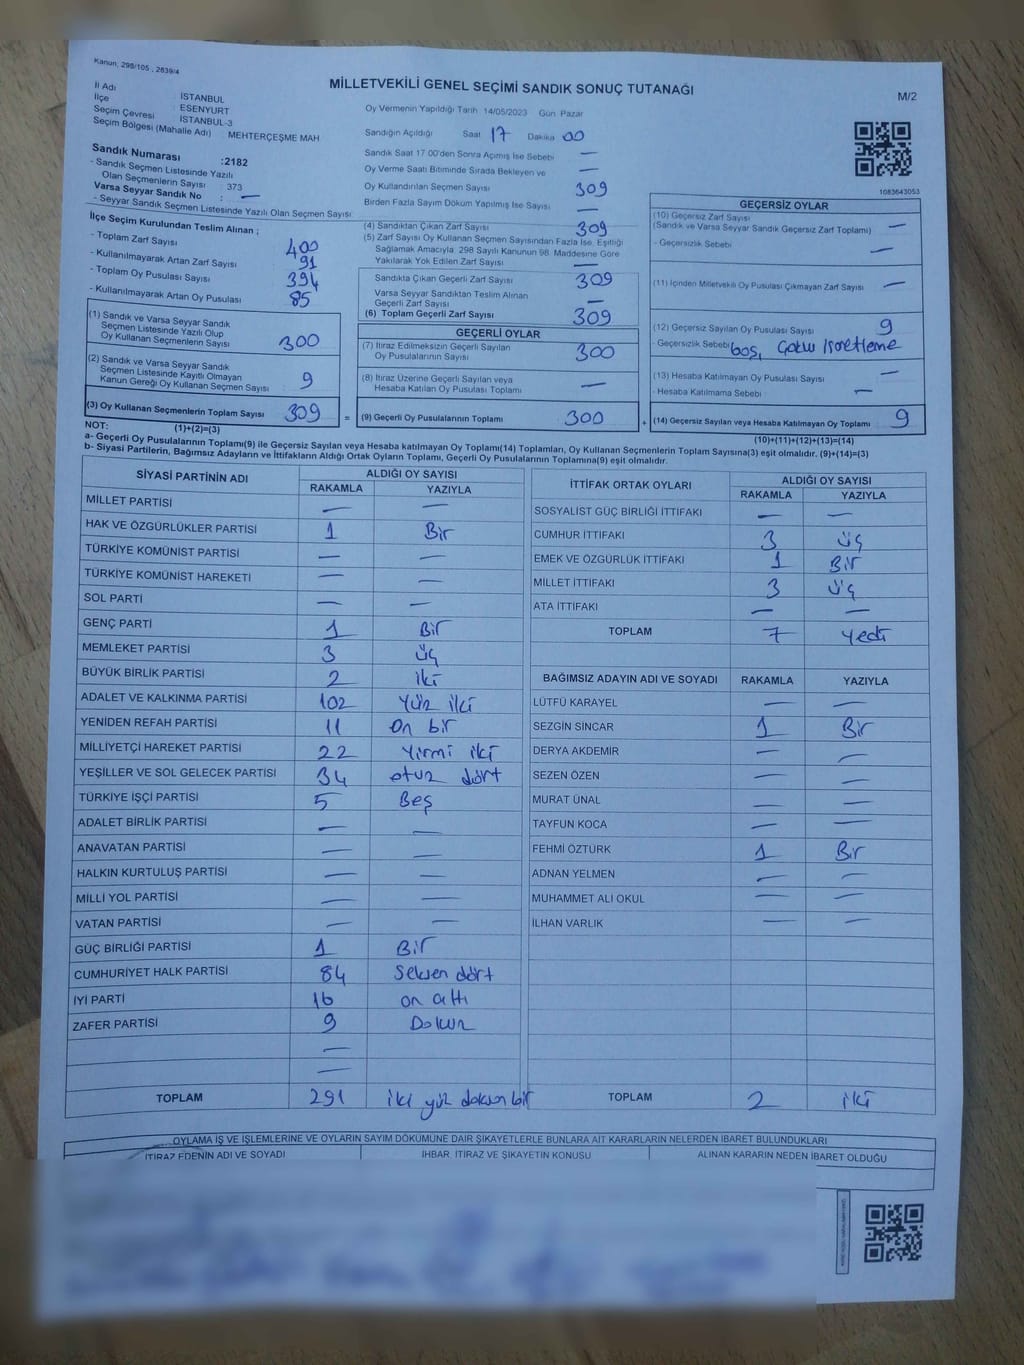 Kanun, 298/105 , 2839/4
MİLLETVEKİLİ GENEL SEÇİMİ SANDIK SONUÇ TUTANAĞI
M/2
İl Adı : İSTANBUL
İlçe : ESENYURT
Seçim Çevresi : İSTANBUL-3
Seçim Bölgesi (Mahalle Adı) : MEHTERÇEŞME MAH
Sandık Numarası :2182
- Sandık Seçmen Listesinde Yazılı
Olan Seçmenlerin Sayısı : 373
Varsa Seyyar Sandık No : —
- Seyyar Sandık Seçmen Listesinde Yazılı Olan Seçmen Sayısı:
Oy Vermenin Yapıldığı Tarih: 14/05/2023 Gün: Pazar
Sandığın Açıldığı Saat 17 Dakika 00
Sandık Saat 17:00'den Sonra Açılmış İse Sebebi —
Oy Verme Saati Bitiminde Sırada Bekleyen ve —
Oy Kullandırılan Seçmen Sayısı 309
Birden Fazla Sayım Döküm Yapılmış İse Sayısı —
1083643053
İlçe Seçim Kurulundan Teslim Alınan ;
- Toplam Zarf Sayısı 400
- Kullanılmayarak Artan Zarf Sayısı 91
- Toplam Oy Pusulası Sayısı 394
- Kullanılmayarak Artan Oy Pusulası 85
(1) Sandık ve Varsa Seyyar Sandık
Seçmen Listesinde Yazılı Olup
Oy Kullanan Seçmenlerin Sayısı : 300
(2) Sandık ve Varsa Seyyar Sandık
Seçmen Listesinde Kayıtlı Olmayan
Kanun Gereği Oy Kullanan Seçmen Sayısı : 9
(3) Oy Kullanan Seçmenlerin Toplam Sayısı 309
(4) Sandıktan Çıkan Zarf Sayısı 309
(5) Zarf Sayısı Oy Kullanan Seçmen Sayısından Fazla İse, Eşitliği
Sağlamak Amacıyla, 298 Sayılı Kanunun 98. Maddesine Göre
Yakılarak Yok Edilen Zarf Sayısı —
Sandıkta Çıkan Geçerli Zarf Sayısı 309
Varsa Seyyar Sandıktan Teslim Alınan
Geçerli Zarf Sayısı —
(6) Toplam Geçerli Zarf Sayısı 309
GEÇERLİ OYLAR
(7) İtiraz Edilmeksizin Geçerli Sayılan
Oy Pusulalarının Sayısı 300
(8) İtiraz Üzerine Geçerli Sayılan veya
Hesaba Katılan Oy Pusulası Toplamı —
= (9) Geçerli Oy Pusulalarının Toplamı 300
GEÇERSİZ OYLAR
(10) Geçersiz Zarf Sayısı —
(Sandık ve Varsa Seyyar Sandık Geçersiz Zarf Toplamı)
- Geçersizlik Sebebi —
(11) İçinden Milletvekili Oy Pusulası Çıkmayan Zarf Sayısı —
(12) Geçersiz Sayılan Oy Pusulası Sayısı 9
- Geçersizlik Sebebi boş, Çoklu işaretleme
(13) Hesaba Katılmayan Oy Pusulası Sayısı —
- Hesaba Katılmama Sebebi —
+ (14) Geçersiz Sayılan veya Hesaba Katılmayan Oy Toplamı 9
NOT: (1)+(2)=(3)
(10)+(11)+(12)+(13)=(14)
a- Geçerli Oy Pusulaları Toplamı(9) ile Geçersiz Sayılan veya Hesaba katılmayan Oy Toplamı(14) Toplamları, Oy Kullanan Seçmenlerin Toplam Sayısına(3) eşit olmalıdır. (9)+(14)=(3)
b- Siyasi Partilerin, Bağımsız Adayların ve İttifakların Aldığı Ortak Oyların Toplamı, Geçerli Oy Pusulalarının Toplamına(9) eşit olmalıdır.
SİYASİ PARTİNİN ADI ALDIĞI OY SAYISI
RAKAMLA YAZIYLA
MİLLET PARTİSİ — —
HAK VE ÖZGÜRLÜKLER PARTİSİ 1 Bir
TÜRKİYE KOMÜNİST PARTİSİ — —
TÜRKİYE KOMÜNİST HAREKETİ — —
SOL PARTİ — —
GENÇ PARTİ 1 Bir
MEMLEKET PARTİSİ 3 üç
BÜYÜK BİRLİK PARTİSİ 2 iki
ADALET VE KALKINMA PARTİSİ 102 Yüz iki
YENİDEN REFAH PARTİSİ 11 On bir
MİLLİYETÇİ HAREKET PARTİSİ 22 Yirmi iki
YEŞİLLER VE SOL GELECEK PARTİSİ 34 otuz dört
TÜRKİYE İŞÇİ PARTİSİ 5 Beş
ADALET BİRLİK PARTİSİ — —
ANAVATAN PARTİSİ — —
HALKIN KURTULUŞ PARTİSİ — —
MİLLİ YOL PARTİSİ — —
VATAN PARTİSİ — —
GÜÇ BİRLİĞİ PARTİSİ 1 Bir
CUMHURİYET HALK PARTİSİ 84 Seksen dört
İYİ PARTİ 16 on altı
ZAFER PARTİSİ 9 Dokuz
—
—
TOPLAM 291 iki yüz doksan bir
İTTİFAK ORTAK OYLARI ALDIĞI OY SAYISI
RAKAMLA YAZIYLA
SOSYALİST GÜÇ BİRLİĞİ İTTİFAKI — —
CUMHUR İTTİFAKI 3 üç
EMEK VE ÖZGÜRLÜK İTTİFAKI 1 Bir
MİLLET İTTİFAKI 3 üç
ATA İTTİFAKI — —
TOPLAM 7 yedi
BAĞIMSIZ ADAYIN ADI VE SOYADI RAKAMLA YAZIYLA
LÜTFÜ KARAYEL — —
SEZGİN SİNCAR 1 Bir
DERYA AKDEMİR — —
SEZEN ÖZEN — —
MURAT ÜNAL — —
TAYFUN KOCA — —
FEHMİ ÖZTÜRK 1 Bir
ADNAN YELMEN — —
MUHAMMET ALİ OKUL — —
İLHAN VARLIK — —
TOPLAM 2 iki
OYLAMA İŞ VE İŞLEMLERİNE VE OYLARIN SAYIM DÖKÜMÜNE DAİR ŞİKAYETLERLE BUNLARA AİT KARARLARIN NELERDEN İBARET BULUNDUKLARI
İTİRAZ EDENİN ADI VE SOYADI İHBAR, İTİRAZ VE ŞİKAYETİN KONUSU ALINAN KARARIN NEDEN İBARET OLDUĞU